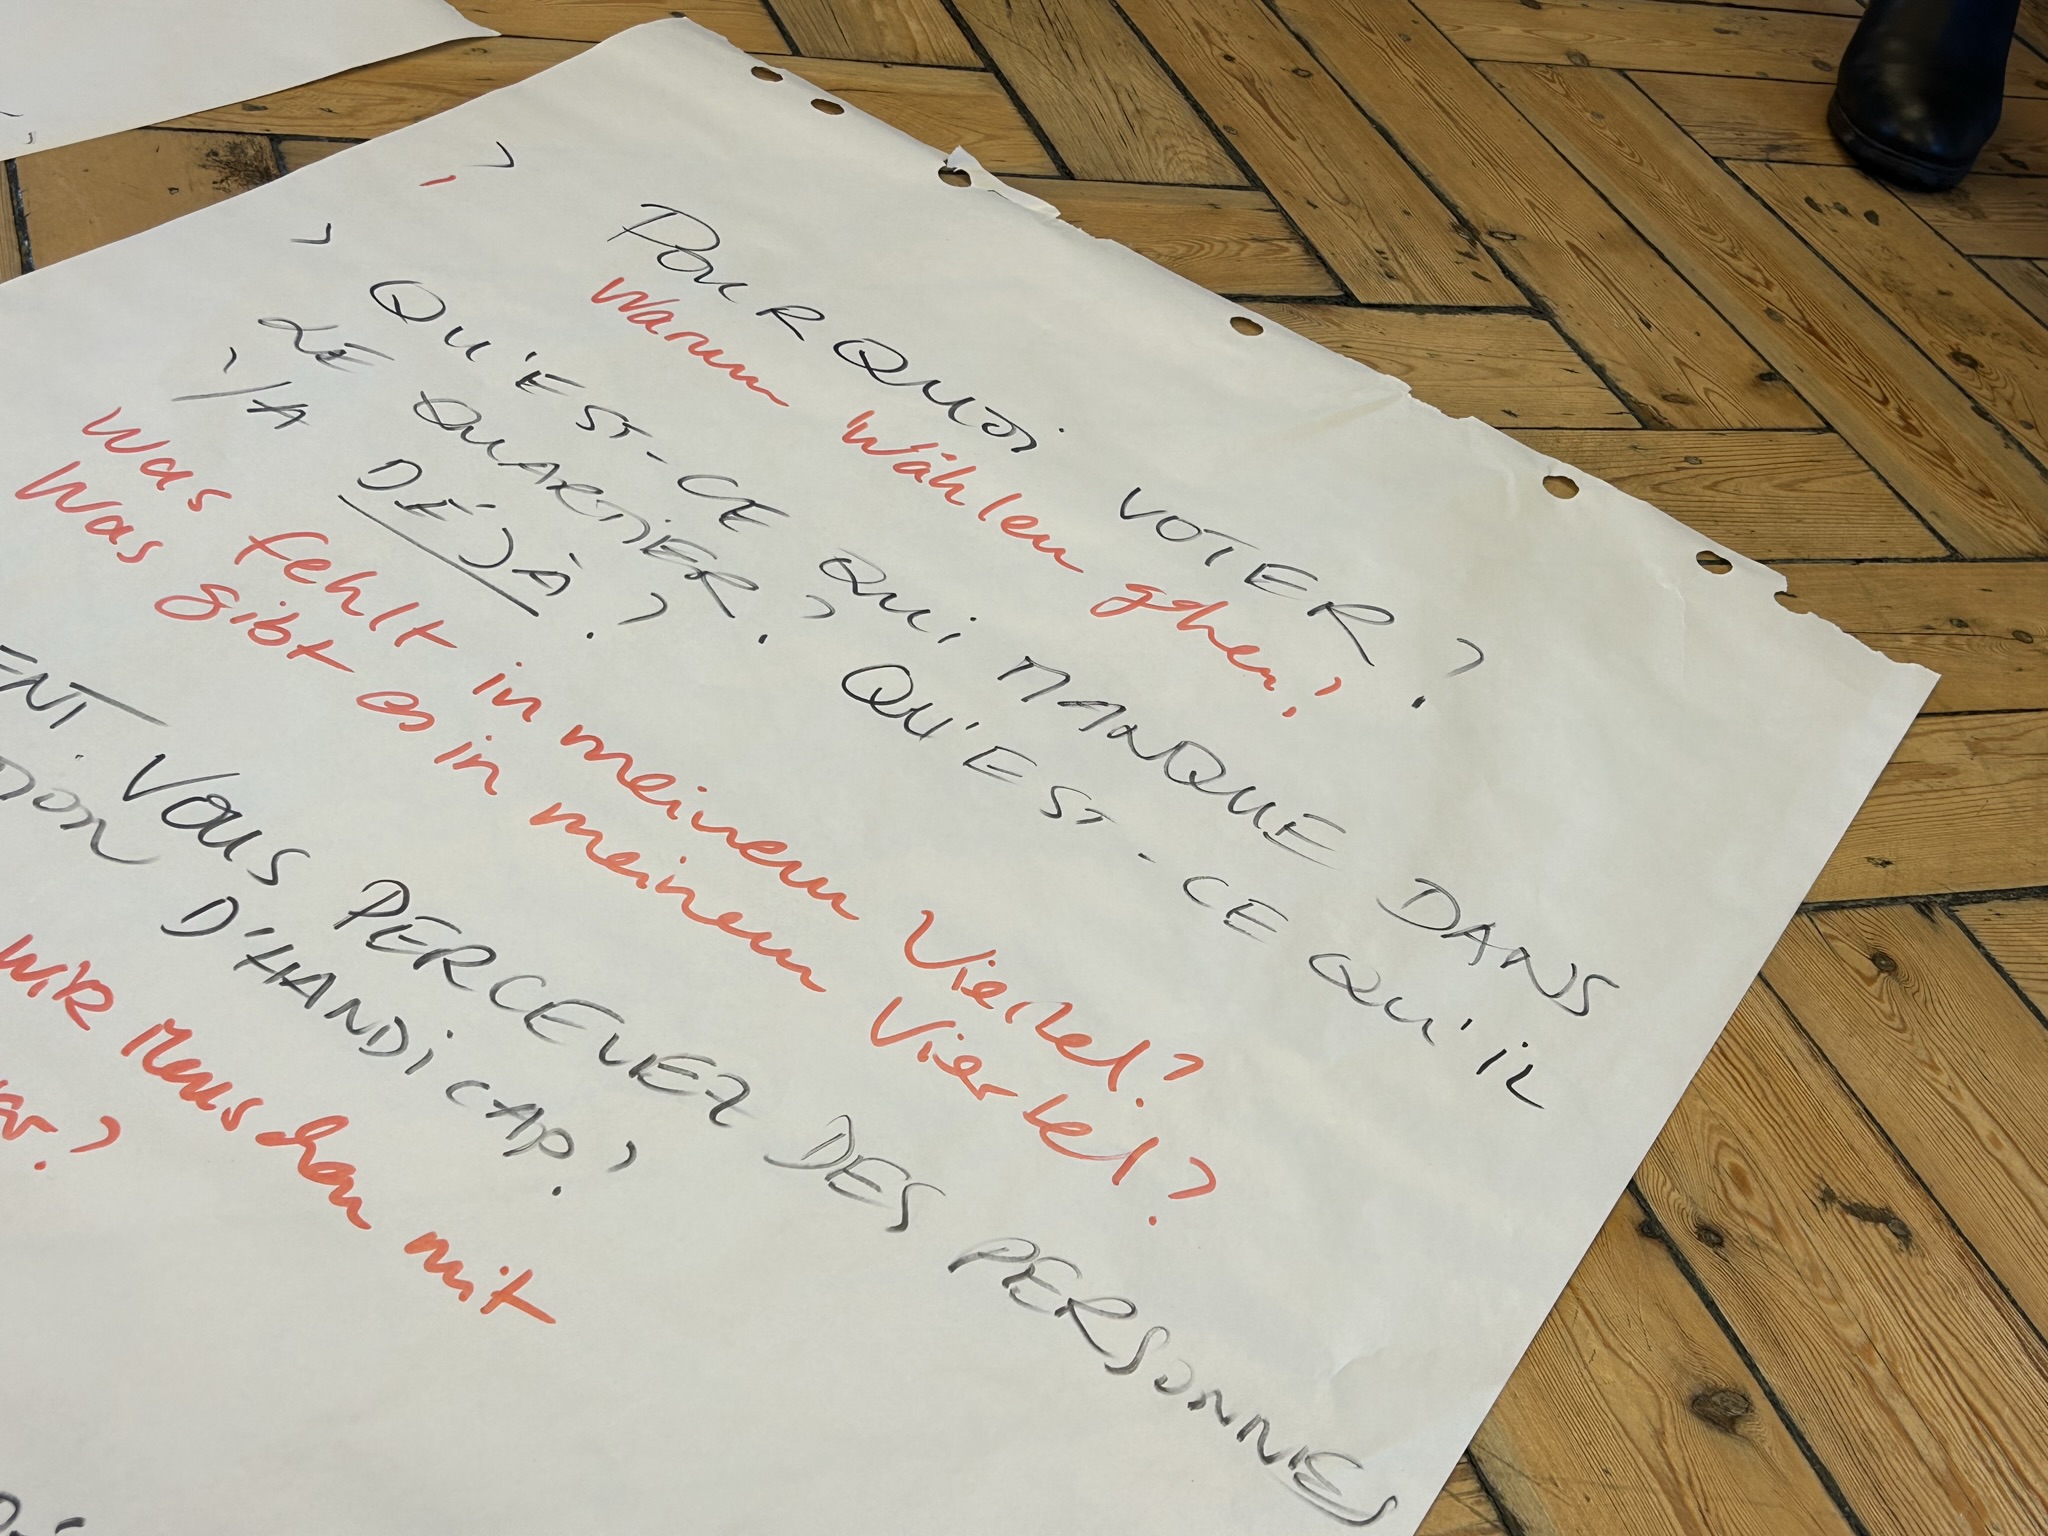 POURQUOI VOTER ?
Warum Wählen gehen?
QU'EST-CE QUI MANQUE DANS
LE QUARTIER? QU'EST-CE QU'IL
Y A DÉJÀ ?
Was fehlt in meinem Viertel?
Was gibt es in meinem Viertel?
ENT VOUS PERCEVEZ DES PERSONNES
TION D'HANDICAP?
WIR Menschen mit